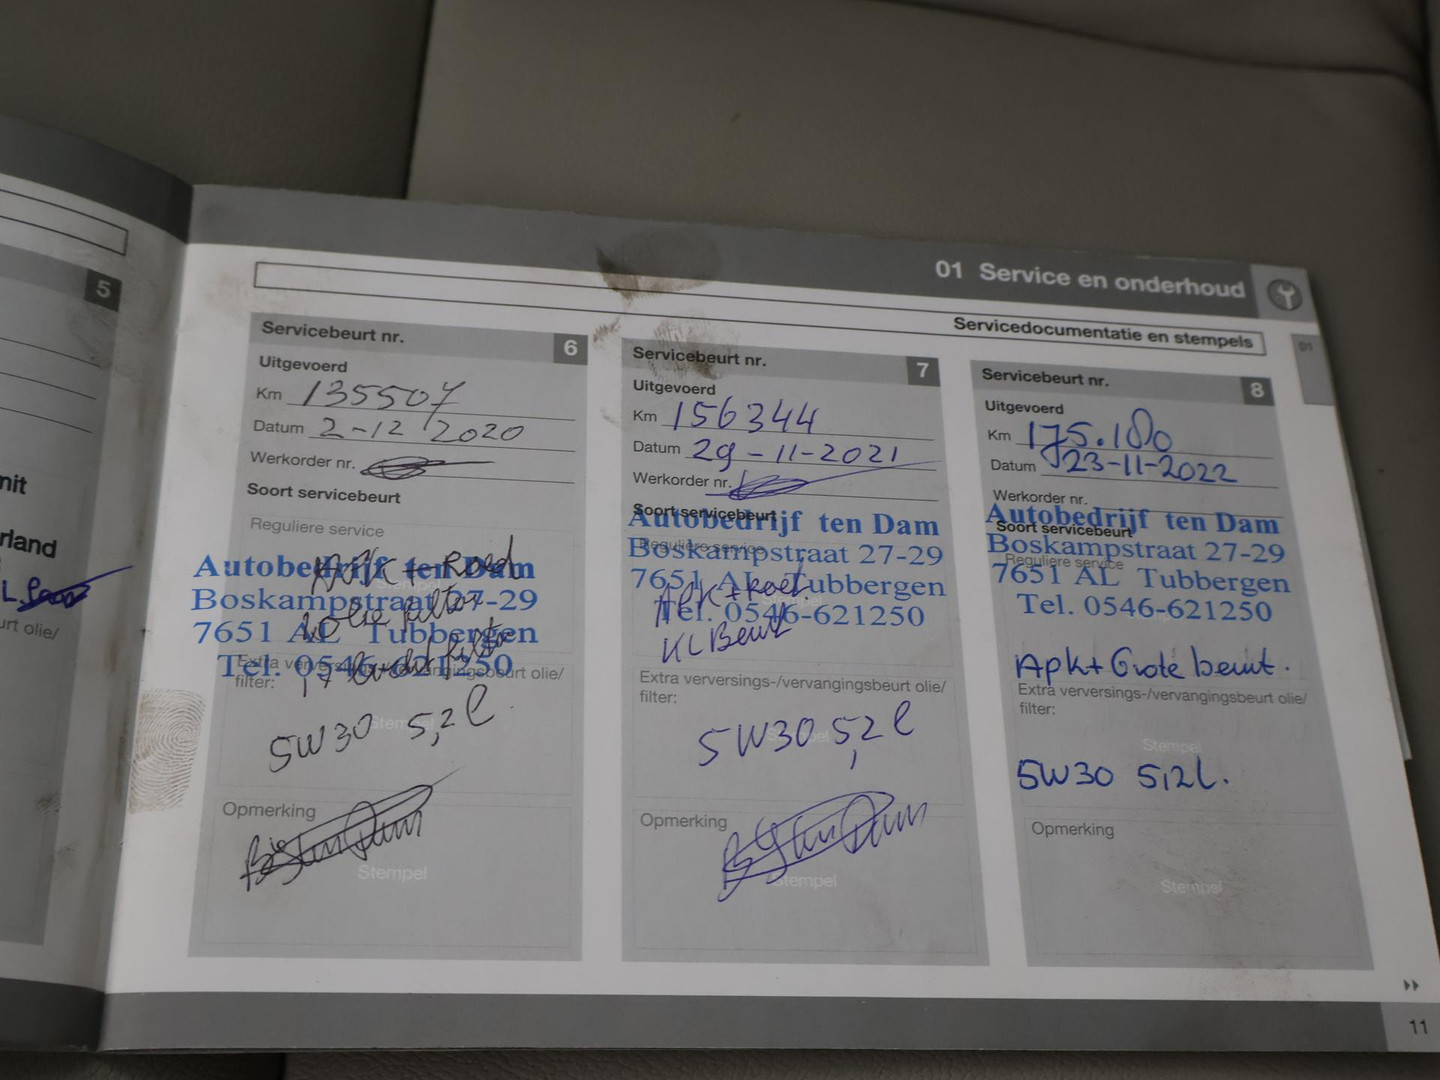 5
nit
rland
L.
urt olie/
01 Service en onderhoud
Servicedocumentatie en stempels
01
Servicebeurt nr. 6
Uitgevoerd
Km 135507
Datum 2-12 2020
Werkorder nr.
Soort servicebeurt
Reguliere service
Autobedrijf ten Dam
Boskampstraat 27-29
7651 AL Tubbergen
Tel. 0546-621250
APK + Roed
olie filter
filter
Extra verversings-/vervangingsbeurt olie/
filter:
Stempel
5W30 5,2l
Opmerking
Stempel
Servicebeurt nr. 7
Uitgevoerd
Km 156344
Datum 29-11-2021
Werkorder nr.
Soort servicebeurt
Reguliere service
Autobedrijf ten Dam
Boskampstraat 27-29
7651 AL Tubbergen
Tel. 0546-621250
APK + Roet
KL Beurt
Extra verversings-/vervangingsbeurt olie/
filter:
Stempel
5W30 5,2l
Opmerking
Stempel
Servicebeurt nr. 8
Uitgevoerd
Km 175.180
Datum 23-11-2022
Werkorder nr.
Soort servicebeurt
Reguliere service
Autobedrijf ten Dam
Boskampstraat 27-29
7651 AL Tubbergen
Tel. 0546-621250
Apk + Grote beurt.
Extra verversings-/vervangingsbeurt olie/
filter:
Stempel
5W30 5,2l.
Opmerking
Stempel
11